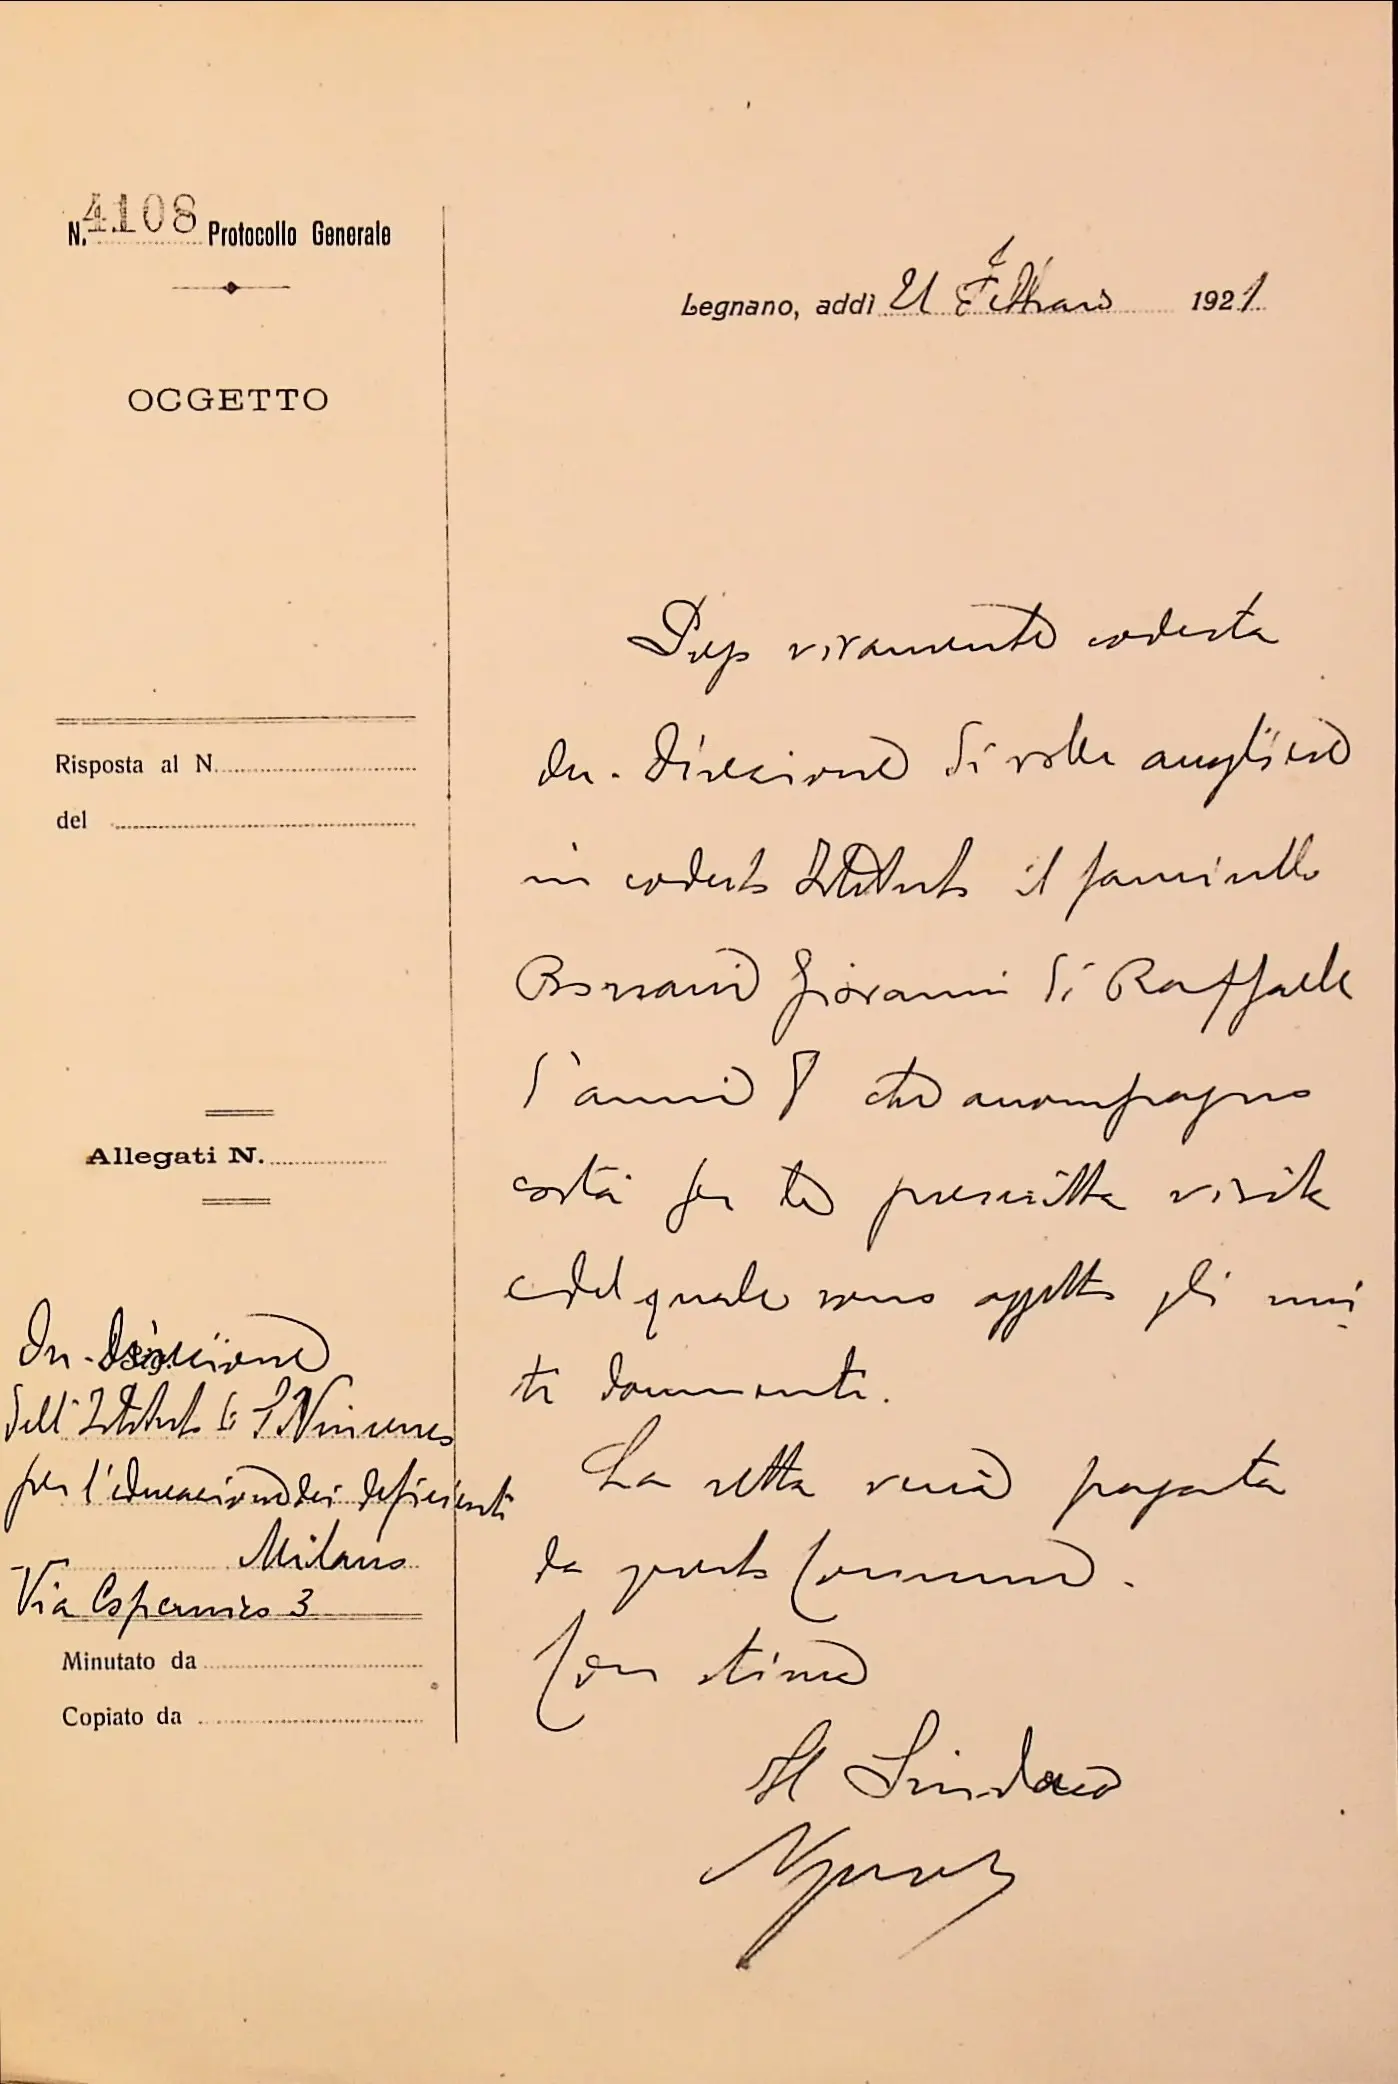 N. 4108 Protocollo Generale
OGGETTO
Risposta al N.
del
Allegati N.
On. Direzione
dell'Istituto di S. Vincenzo
per l'educazione dei deficienti
Milano
Via Copernico 3
Minutato da
Copiato da
Legnano, addì 21 Febbraio 1921
Prego vivamente codesta
On. Direzione di voler accogliere
in codesto Istituto il fanciullo
Giovanni di Raffaele
d'anni 8 che accompagno
costà per la prescritta visita
e del quale sono oggetto gli uni
ti documenti.
La retta verrà pagata
da questo Comune.
Con stima
Il Sindaco